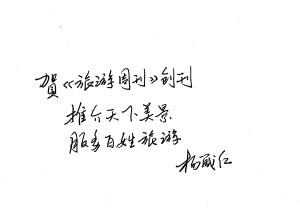 賀《旅游周刊》创刊
推介天下美景
服务百姓旅游
杨威仁